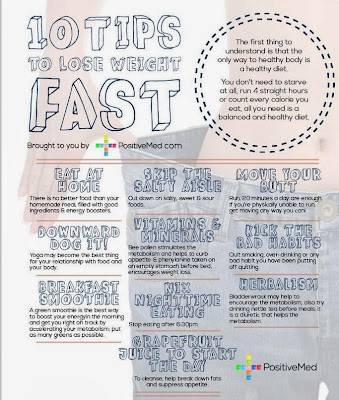 10 TIPS
TO LOSE WEIGHT
FAST
Brought to you by PositiveMed.com
The first thing to
understand is that the
only way to healthy body is
a healthy diet.
You don't need to starve
at all, run 4 straight hours
or count every calorie you
eat, all you need is a
balanced and healthy diet.
EAT AT
HOME
There is no better food than your
homemade meal, filled with good
ingredients & energy boosters.
DOWNWARD
DOG IT!
Yoga may become the best thing
for your relationship with food and
your body.
BREAKFAST
SMOOTHIE
A green smoothie is the best way
to boost your energyin the morning
and get you right on track by
accelerating your metabolism; put
as many greens as possible.
SKIP THE
SALTY AISLE
Cut down on salty, sweet & sour
foods.
VITAMINS &
MINERALS
Bee pollen stimulates the
metabolism and helps to curb
appetite & phenylanine taken on
an empty stomach before bed,
encourages weight loss.
NIX
NIGHTTIME
EATING
Stop eating after 6:30pm.
GRAPEFRUIT
JUICE TO START
THE DAY
To cleanse, help break down fats
and suppress appetite.
MOVE YOUR
BUTT
Run, 20 minutes a day are enough
if you're physically unable to run,
get moving any way you can!
KICK THE
BAD HABITS
Quit smoking, over-drinking or any
bad habit you have been putting
off quitting.
HERBALISM
Bladderwrack may help to
encourage the metabolism, also try
drinking nettle tea before meals, it
is a diuretic that helps the
metabolism.
PositiveMed